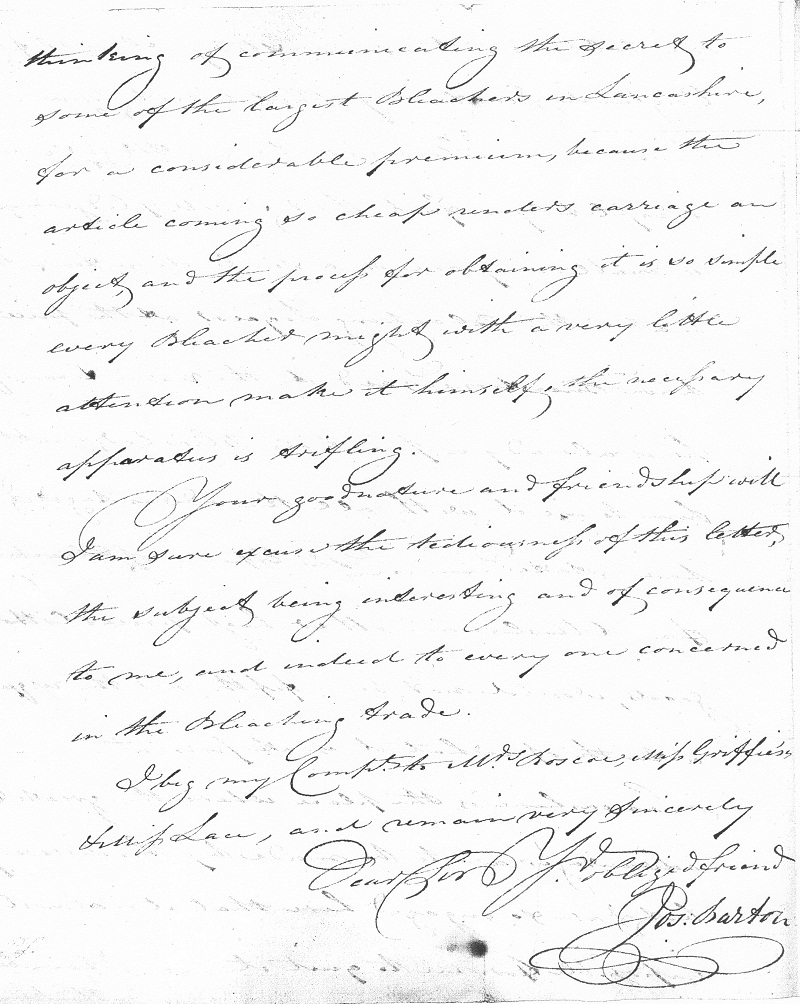 thinking of communicating the secret to
some of the largest Bleachers in Lancashire,
for a considerable premium, because the
article coming so cheap renders carriage an
object, and the process for obtaining it is so simple
every Bleacher might with a very little
attention make it himself, the necessary
apparatus is trifling.
Your goodnature and friendship will
I am sure excuse the tediousness of this letter,
the subject being interesting and of consequence
to me, and indeed to every one concerned
in the Bleaching trade.
I beg my Compts. to Mrs Roscoe, Miss Griffies,
& Miss Lace, and remain very sincerely
Dear Sir Yr. obliged friend
Jos: Barton